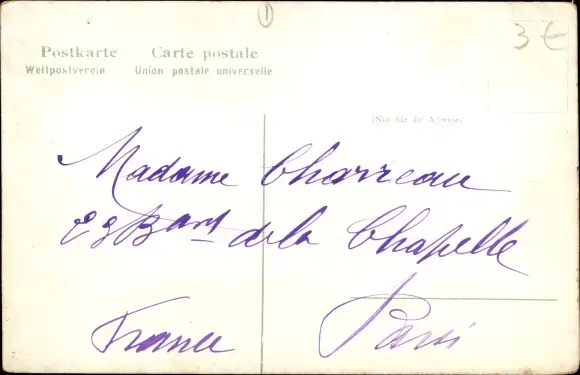 3 €
Postkarte Carte postale
Weltpostverein Union postale universelle
(Nur für die Adresse)
Madame Charreau
Bard de la Chapelle
Paris
France